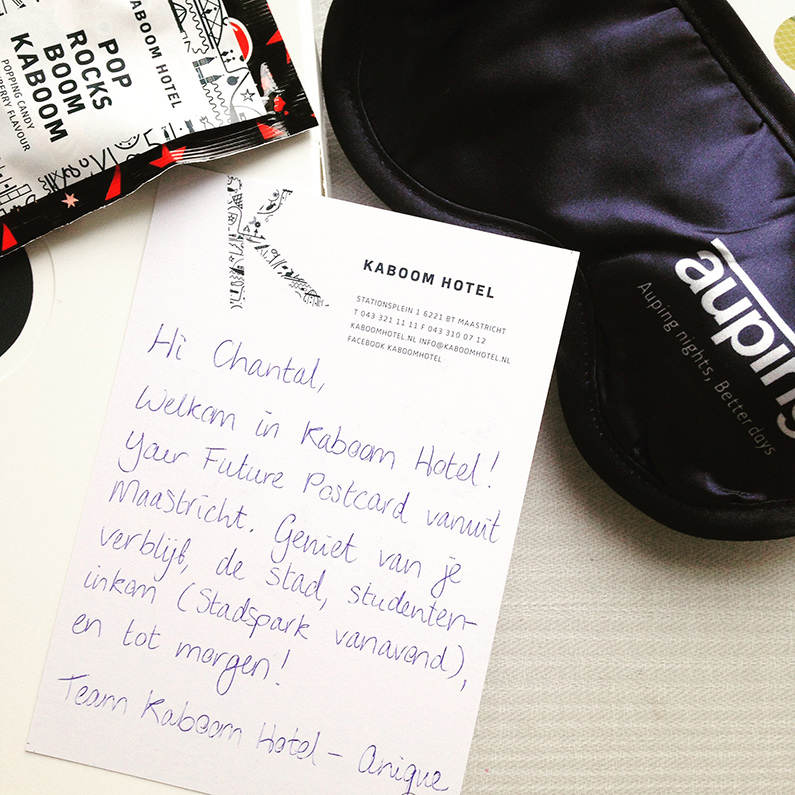 KABOOM HOTEL
POP
ROCKS
BOOM
KABOOM
POPPING CANDY
auping
Auping nights, Better days
KABOOM HOTEL
STATIONSPLEIN 1 6221 BT MAASTRICHT
T 043 321 11 11 F 043 310 07 12
KABOOMHOTEL.NL INFO@KABOOMHOTEL.NL
FACEBOOK KABOOMHOTEL
Hi Chantal,
Welkom in Kaboom Hotel!
Your Future Postcard vanuit
Maastricht. Geniet van je
verblijf, de stad, studenten-
inkom (Stadspark vanavond),
en tot morgen!
Team Kaboom Hotel - Anique